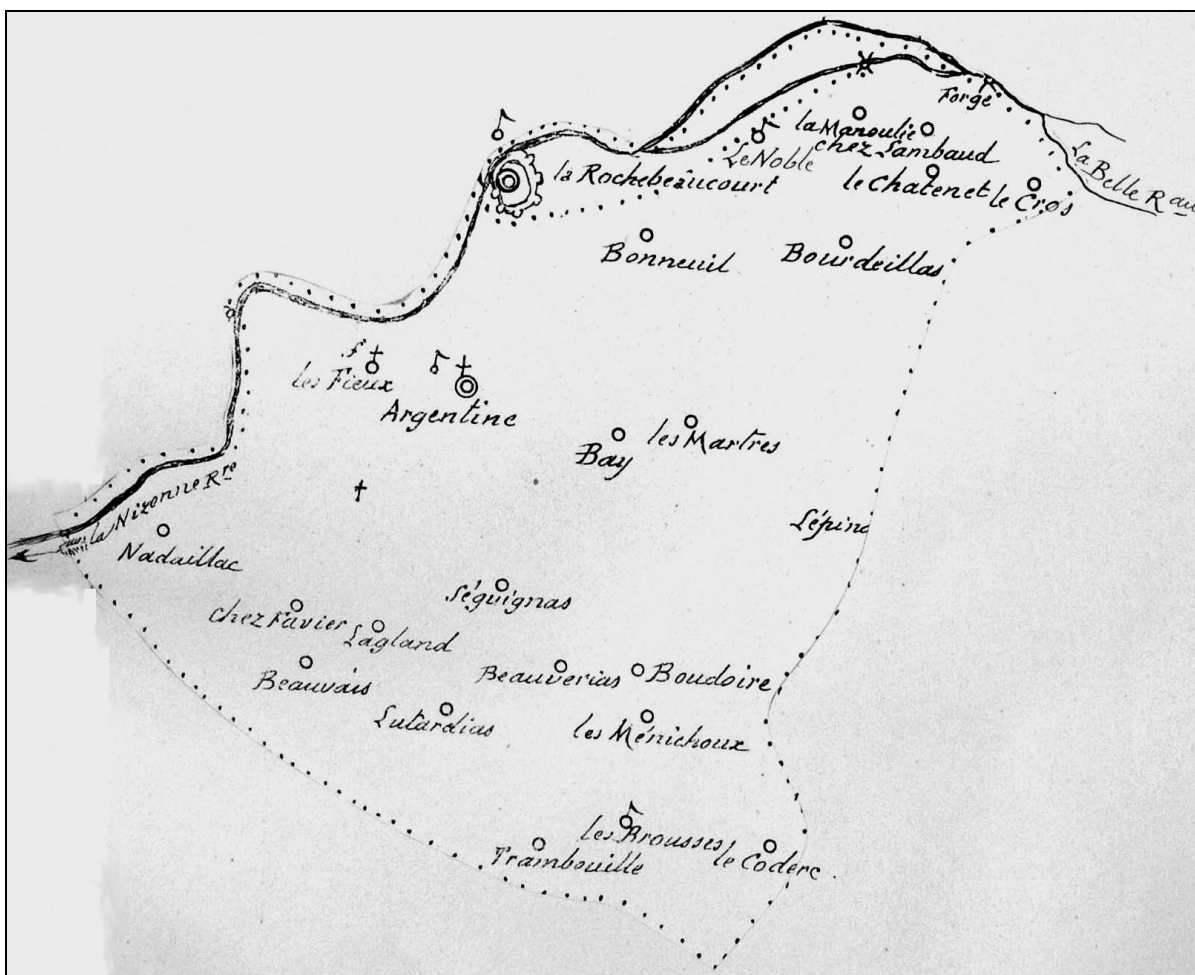 Forge
la Manoulie
chez Lambaud
Le Noble
La Belle R au
la Rochebeaucourt
le Chatenet
le Cros
Bonneuil
Bourdeillas
f
les Fieux
Argentine
Bay
les Martres
la Nizonne R re
Lépine
Nadaillac
Séguignas
chez Favier
Lagland
Beauvais
Beauverias
Boudoire
Lutardias
les Ménichoux
les Brousses
Trambouille
le Coderc